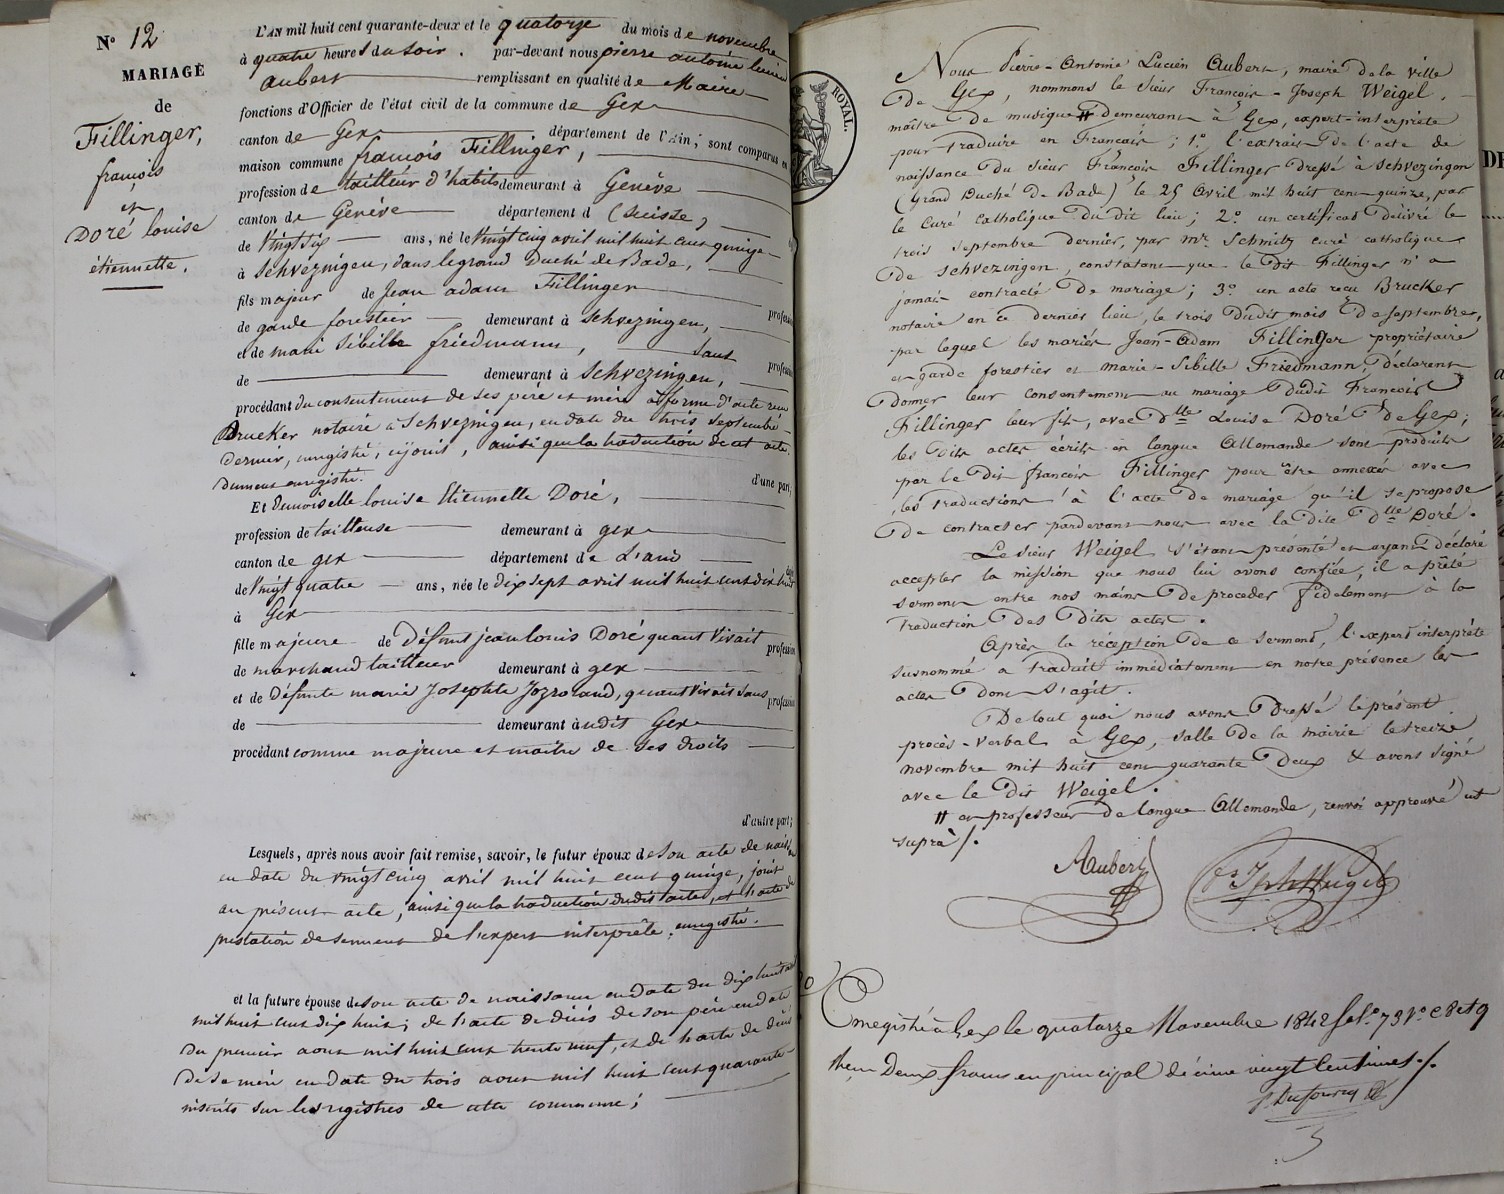 N° 12
MARIAGE
de
Fillinger,
françois
et
Doré louise
étiennette.
L'AN mil huit cent quarante-deux et le quatorze du mois de novembre
à quatre heures du soir. par-devant nous pierre antoine lucien
Aubert remplissant en qualité de Maire
fonctions d'Officier de l'état civil de la commune de Gex
canton de Gex département de l'Ain; sont comparus en
maison commune françois Fillinger,
profession de tailleur d'habits demeurant à Genève
canton de Genève département d (Suisse)
de Vingt six ans, né le Vingt cinq avril mil huit cent quinze
à Schvezingen, dans le grand Duché de Bade,
fils majeur de Jean adam Fillinger profession
de garde forestier demeurant à Schvezingen,
et de marie Sibille friedmann, Sans profession
de demeurant à Schvezingen,
procédant du consentement de ses père et mère en forme d'acte reçu
Brucker notaire à Schvezingen, en date du trois Septembre
dernier, enregistré, ci joint, ainsi que la traduction de cet acte
dument enregistré. d'une part;
Et Demoiselle louise Etiennette Doré,
profession de tailleuse demeurant à gex
canton de gex département de L'ain
de Vingt quatre ans, née le dix sept avril mil huit cent dix huit
à Gex
fille majeure de Défunt jean louis Doré quant Vivait profession
de marchand tailleur demeurant à gex
et de Défunte marie Josephte, quant Vivait sans profession
de demeurant à udit Gex
procédant comme majeure et maitre de ses droits
d'autre part;
Lesquels, après nous avoir fait remise, savoir, le futur époux de son acte de naissance
en date du vingt cinq avril mil huit cent quinze, joint
au présent acte, ainsi que la traduction dudit acte, et l'acte de
prestation de serment de l'expert interprête, enregistré.
et la future épouse de son acte de naissance en date du dix huit avril
mil huit cent dix huit; de l'acte de décès de son père en date
du premier aout mil huit cent trente neuf, et de l'acte de décès
de sa mère en date du trois aout mil huit cent quarante
inscrits sur les registres de cette commune;
ROYAL.
Nous Pierre-Antoine Lucien Aubert, maire de la ville
de Gex, nommons le Sieur François-Joseph Weigel,
maître de musique # demeurant à Gex, expert-interprête
pour traduire en Français; 1° l'extrait de l'acte de
naissance du Sieur François Fillinger dressé à Schvezingen
(Grand Duché de Bade) le 25 Avril mil huit cent quinze, par
le curé catholique du dit lieu; 2° un certificat délivré le
trois septembre dernier, par mr. Schmitz curé catholique
de Schvezingen, constatant que le dit Fillinger n'a
jamais contracté de mariage; 3° un acte reçu Brucker
notaire en ce dernier lieu, le trois dudit mois de septembre,
par lequel les mariés Jean-Adam Fillinger propriétaire
et garde forestier et marie-Sibille Friedmann, déclarent
donner leur consentement au mariage dudit François
Fillinger leur fils, avec Dlle Louise Doré de Gex;
les dits actes écrits en langue Allemande sont produits
par le dit françois Fillinger pour être annexés avec
les traductions à l'acte de mariage qu'il se propose
de contracter pardevant nous avec la dite Dlle Doré.
Le Sieur Weigel s'étant présenté et ayant déclaré
accepter la mission que nous lui avons confiée, il a prêté
serment entre nos mains de procéder fidelement à la
traduction des dits actes.
Après la réception de ce serment, l'expert interprête
susnommé a traduit immédiatement en notre présence les
actes dont s'agit.
De tout quoi nous avons dressé le présent
procès-verbal à Gex, salle de la mairie le treize
novembre mil huit cent quarante deux & avons signé
avec le dit Weigel.
# et professeur de langue Allemande, renvoi approuvé ut
suprà /.
Aubert
Enregistré à Gex le quatorze Novembre 1842 fol. 79 Vo C 8 et 9
Reçu Deux francs en principal décime vingt centimes /.
DE